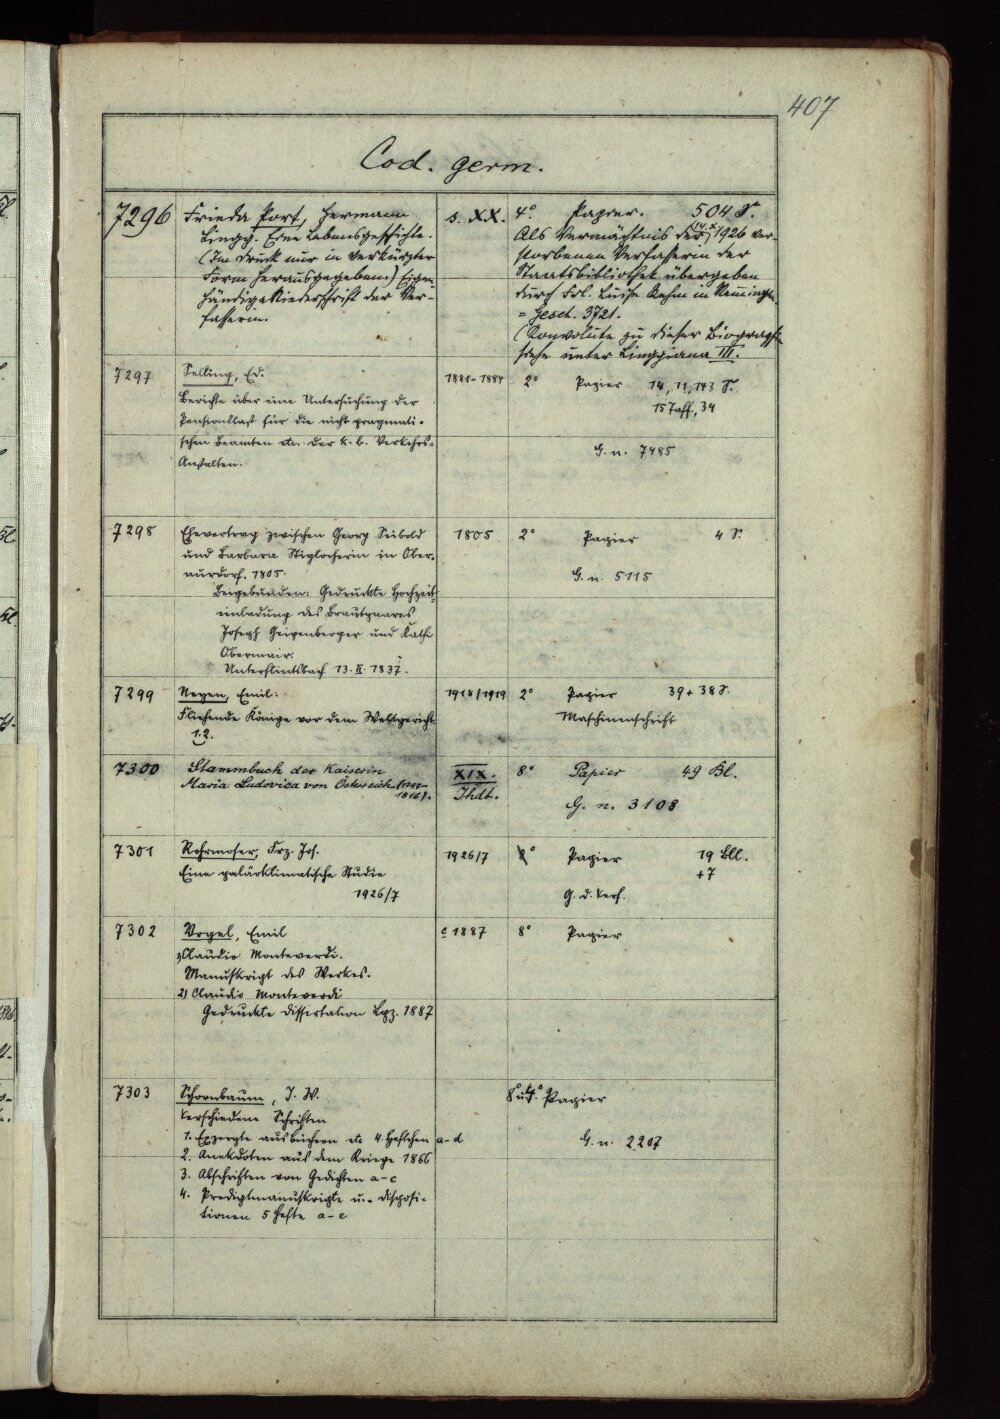 407
Cod. germ.
7296
Frieda Port, Hermann
Lingg. Eine Lebensgeschichte.
(Im Druck nur in verkürzter
Form herausgegeben.) Eigen-
händige Niederschrift der Ver-
fasserin.
s. XX.
4°. Papier. 504 S.
Als Vermächtnis der 1926 ver-
storbenen Verfasserin der
Staatsbibliothek übergeben
durch Frl. Luise
= Gesch. 3721.
(Konvolute zu dieser Biographie
siehe unter Linggiana III.
7297
Selling, Ed.
Berichte über eine Untersuchung der
Pensionslast für die nicht pragmati-
schen Beamten etc. der k. b. Verkehrs-
Anstalten.
1881-1884
2° Papier 14, 11, 143 S.
15 Taff., 34
G. n. 7485
7298
Ehevertrag zwischen Georg Seibold
und Barbara Stiglocherin in Ober-
audorf. 1805.
Beigebunden: Gedruckte Hochzeits-
einladung des Brautpaares
Joseph Geigenberger und Kath.
Obermair.
Unterflintsbach 13. II. 1837.
1805
2° Papier 4 S.
G. n. 5115
7299
Neyen, Emil:
Fliehende Könige vor dem Weltgericht
1.2.
1918/1919
2° Papier 39 + 38 S.
Maschinenschrift
7300
Stammbuch der Kaiserin
Maria Ludovica von Österreich (1787-
1816).
XIX.
Jhdt.
8° Papier 49 Bl.
G. n. 3108
7301
Rohrmoser, Frz. Jos.
Eine paläoklimatische Studie
1926/7
1926/7
° Papier 19 Bll.
+7
G. d. Verf.
7302
Vogel, Emil
1) Claudio Monteverdi.
Manuskript des Werkes.
2) Claudio Monteverdi
Gedruckte Dissertation Lpz. 1887
c 1887
8° Papier
7303
Schornbaum, J. W.
Verschiedene Schriften
1. Exzerpte aus Büchern etc 4 Heftchen a-d
2. Anekdoten aus dem Kriege 1866
3. Abschriften von Gedichten a-c
4. Predigtmanuskripte u. Disposi-
tionen 5 Hefte a-e
8° u. 4° Papier
G. n. 2207